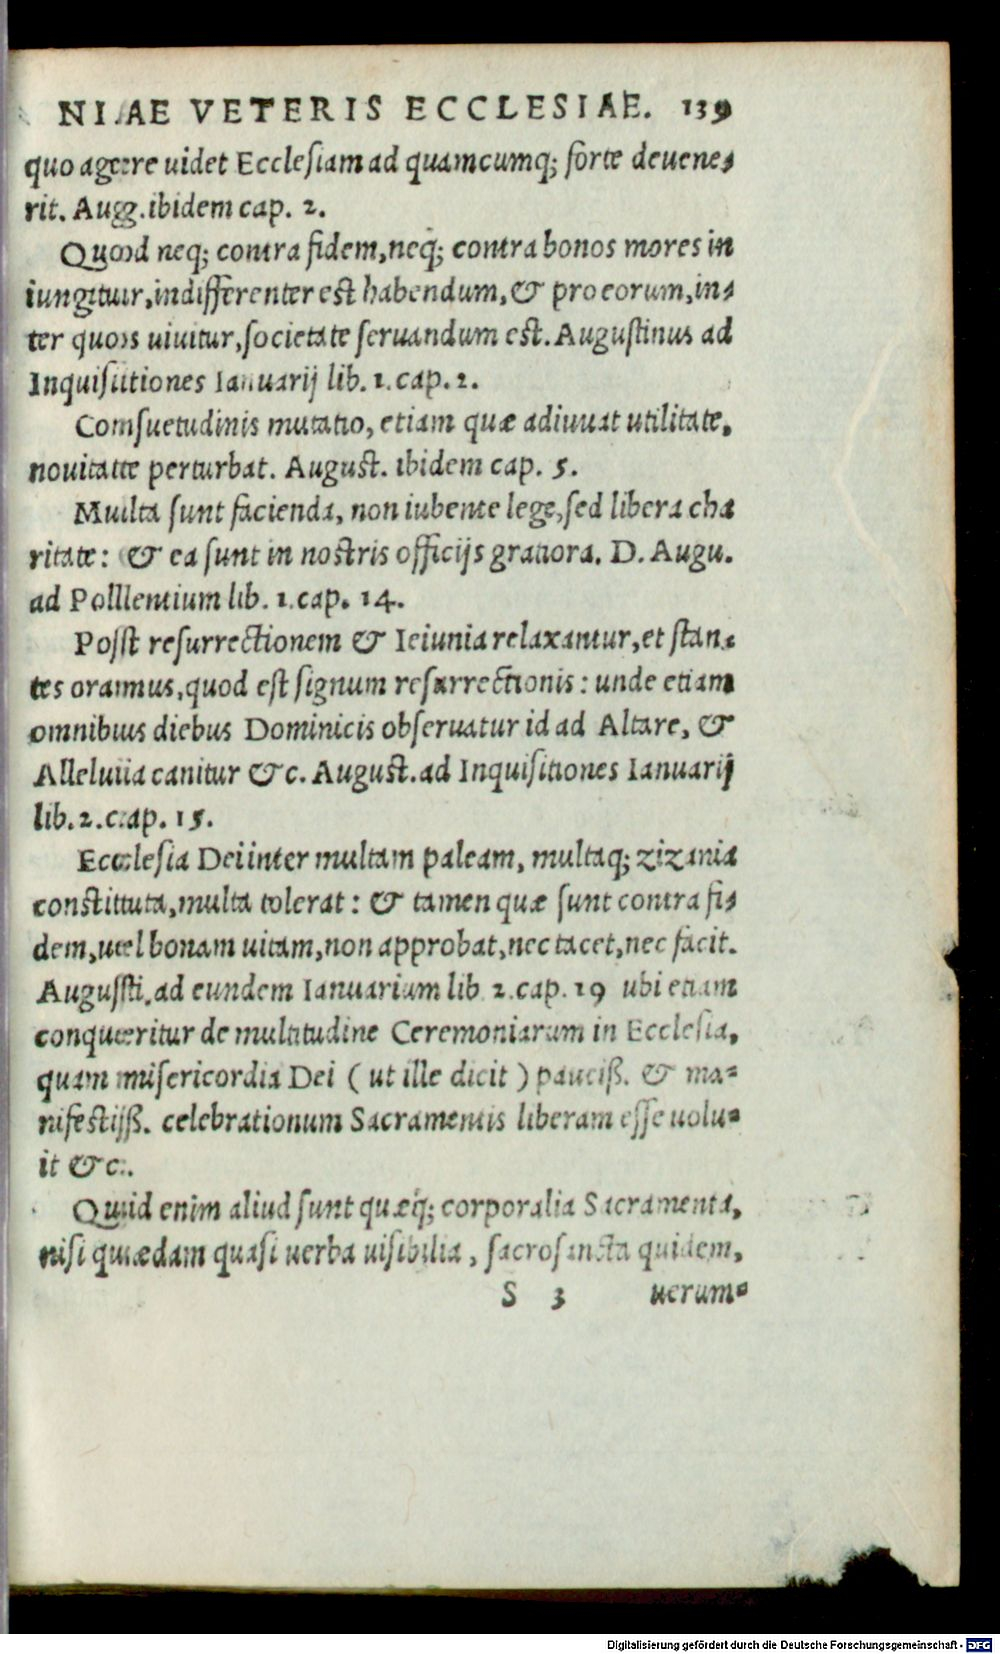 NIAE VETERIS ECCLESIAE. 139
quo agere uidet Ecclesiam ad quamcumq; forte deuene-
rit. Augg. ibidem cap. 2.
Quod neq; contra fidem, neq; contra bonos mores in
iungitur, indifferenter est habendum, & pro eorum, in-
ter quos uiuitur, societate seruandum est. Augustinus ad
Inquisitiones Ianuarij lib. 1. cap. 2.
Consuetudinis mutatio, etiam quæ adiuuat utilitate,
nouitate perturbat. August. ibidem cap. 5.
Multa sunt facienda, non iubente lege, sed libera cha
ritate: & ea sunt in nostris officijs gratiora. D. Augu.
ad Pollentium lib. 1. cap. 14.
Post resurrectionem & Ieiunia relaxantur, et stan-
tes oramus, quod est signum resurrectionis: unde etiam
omnibus diebus Dominicis obseruatur id ad Altare, &
Alleluia canitur &c. August. ad Inquisitiones Ianuarij
lib. 2. cap. 15.
Ecclesia Dei inter multam paleam, multaq; zizania
constituta, multa tolerat: & tamen quæ sunt contra fi-
dem, uel bonam uitam, non approbat, nec tacet, nec facit.
Augusti. ad eundem Ianuarium lib 2. cap. 19 ubi etiam
conqueritur de multitudine Ceremoniarum in Ecclesia,
quam misericordia Dei (ut ille dicit) pauciß. & ma-
nifestijß. celebrationum Sacramentis liberam esse uolu-
it &c.
Quid enim aliud sunt quæq; corporalia Sacramenta,
nisi quædam quasi uerba uisibilia, sacrosancta quidem,
S 3 uerum-
Digitalisierung gefördert durch die Deutsche Forschungsgemeinschaft - DFG